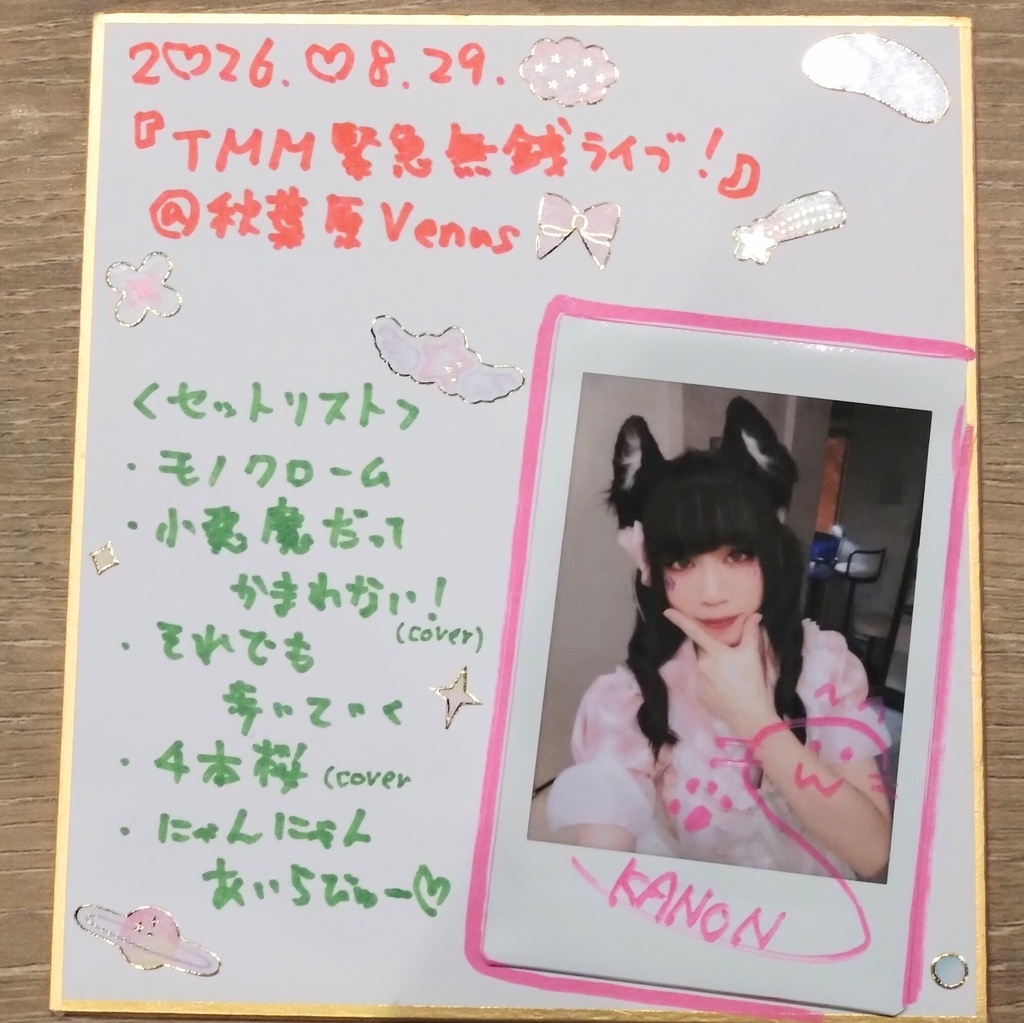 2♡26.♡8.29.
『TMM緊急無銭ライブ!』
@秋葉原Venus
<セットリスト>
・モノクローム
・小悪魔だって
かまわない!
(cover)
・それでも
歩いていく
・4本桜 (cover
・にゃんにゃん
あいらびゅー♡
KANON